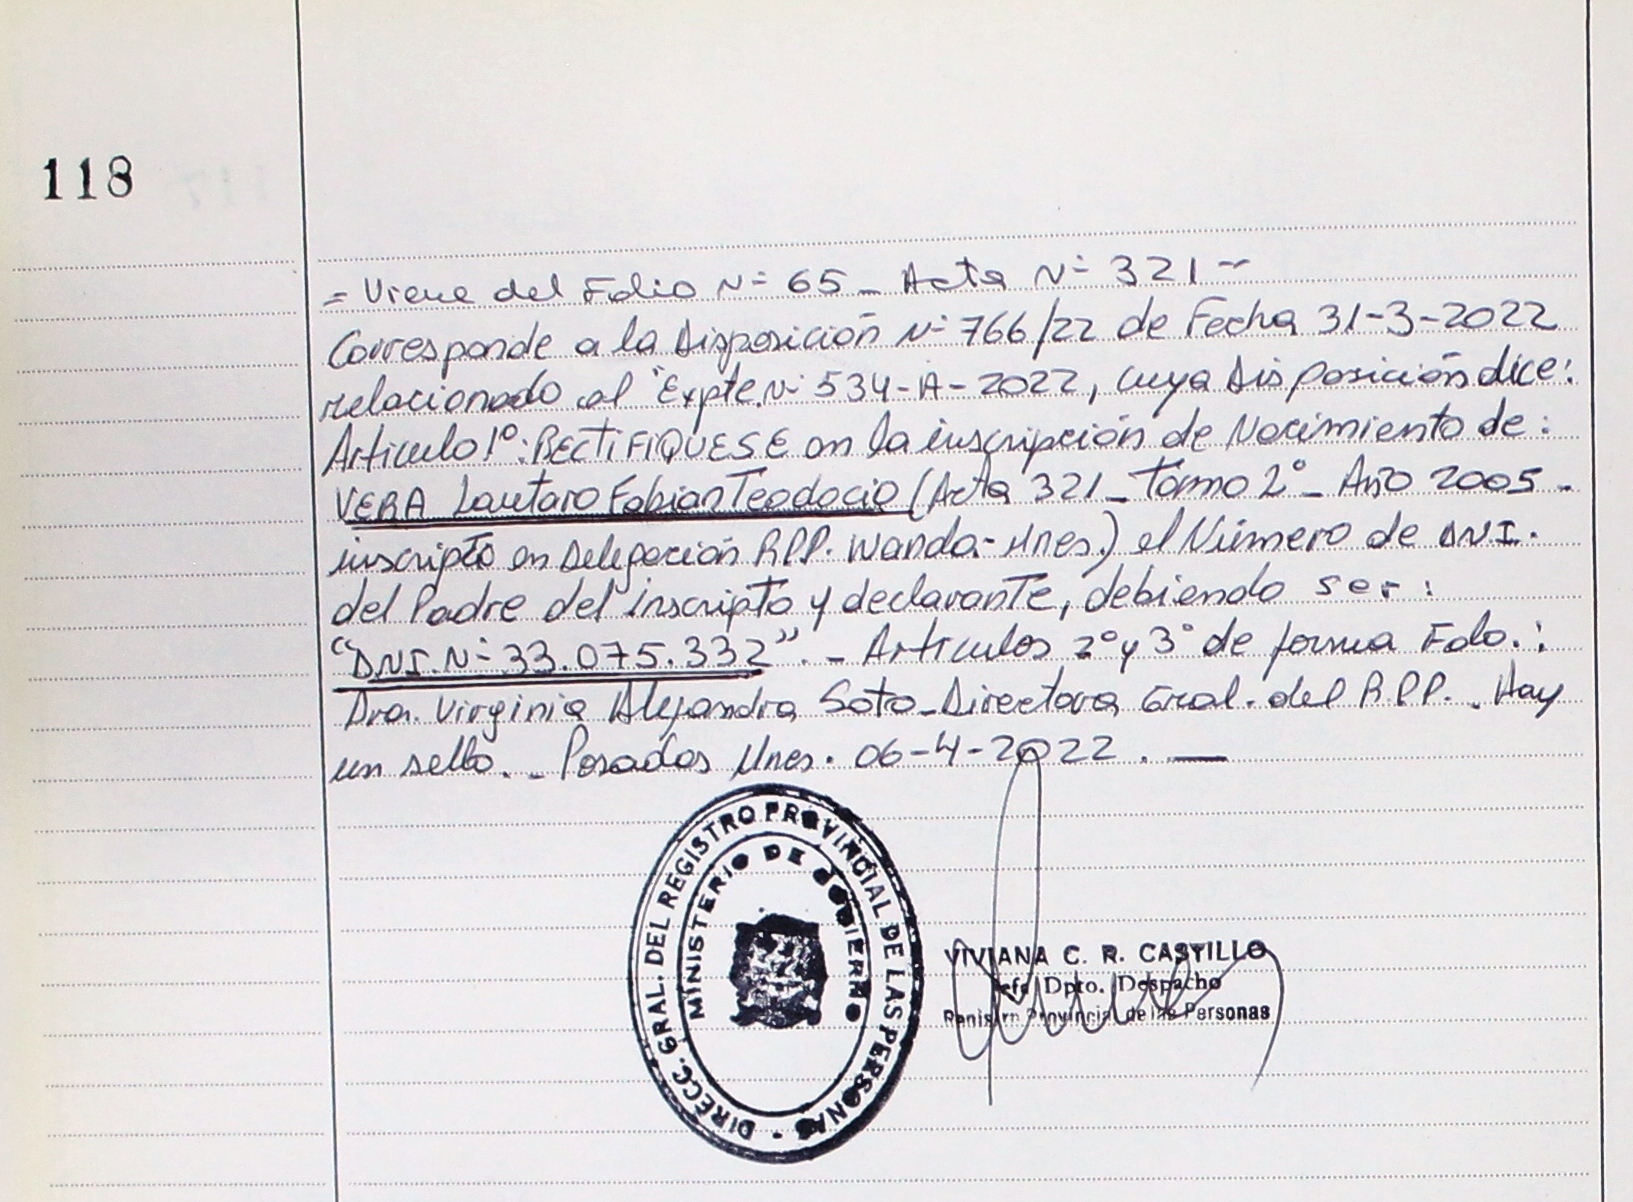 118
= Viene del Folio Nº 65 _ Acta Nº 321 -
Corresponde a la Disposición Nº 766/22 de Fecha 31-3-2022
relacionado al "Expte. Nº 534-A-2022, cuya Disposición dice:
Articulo 1º: RECTIFIQUESE en la inscripción de Nacimiento de:
VERA Lautaro Fabian Teodocio (Acta 321 _ Tomo 2º _ Año 2005 -
inscripto en Delegación R.P.P. Wanda - Mnes.) el Número de D.N.I.
del Padre del inscripto y declarante, debiendo ser:
"DNI. Nº 33.075.332". _ Articulos 2º y 3º de forma Fdo.:
Dra. Virginia Alejandra Soto _ Directora Gral. del R.P.P. _ Hay
un sello. _ Posadas Mnes. 06-4-2022. —
DIRECC. GRAL. DEL REGISTRO PROVINCIAL DE LAS PERSONAS
MINISTERIO DE GOBIERNO
VIVIANA C. R. CASTILLO
Jefa Dpto. Despacho
Registro Provincial de las Personas